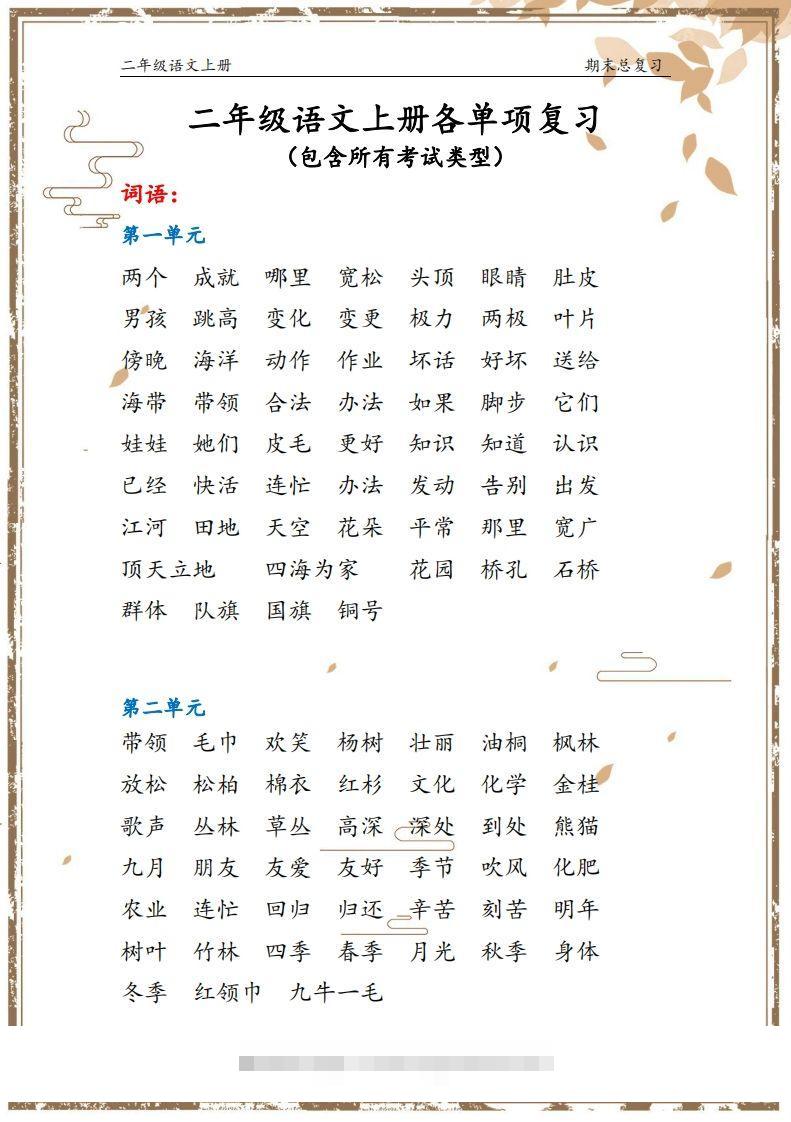 二年级语文上册 期末总复习
二年级语文上册各单项复习
（包含所有考试类型）
词语：
第一单元
两个 成就 哪里 宽松 头顶 眼睛 肚皮
男孩 跳高 变化 变更 极力 两极 叶片
傍晚 海洋 动作 作业 坏话 好坏 送给
海带 带领 合法 办法 如果 脚步 它们
娃娃 她们 皮毛 更好 知识 知道 认识
已经 快活 连忙 办法 发动 告别 出发
江河 田地 天空 花朵 平常 那里 宽广
顶天立地 四海为家 花园 桥孔 石桥
群体 队旗 国旗 铜号
第二单元
带领 毛巾 欢笑 杨树 壮丽 油桐 枫林
放松 松柏 棉衣 红杉 文化 化学 金桂
歌声 丛林 草丛 高深 深处 到处 熊猫
九月 朋友 友爱 友好 季节 吹风 化肥
农业 连忙 回归 归还 辛苦 刻苦 明年
树叶 竹林 四季 春季 月光 秋季 身体
冬季 红领巾 九牛一毛